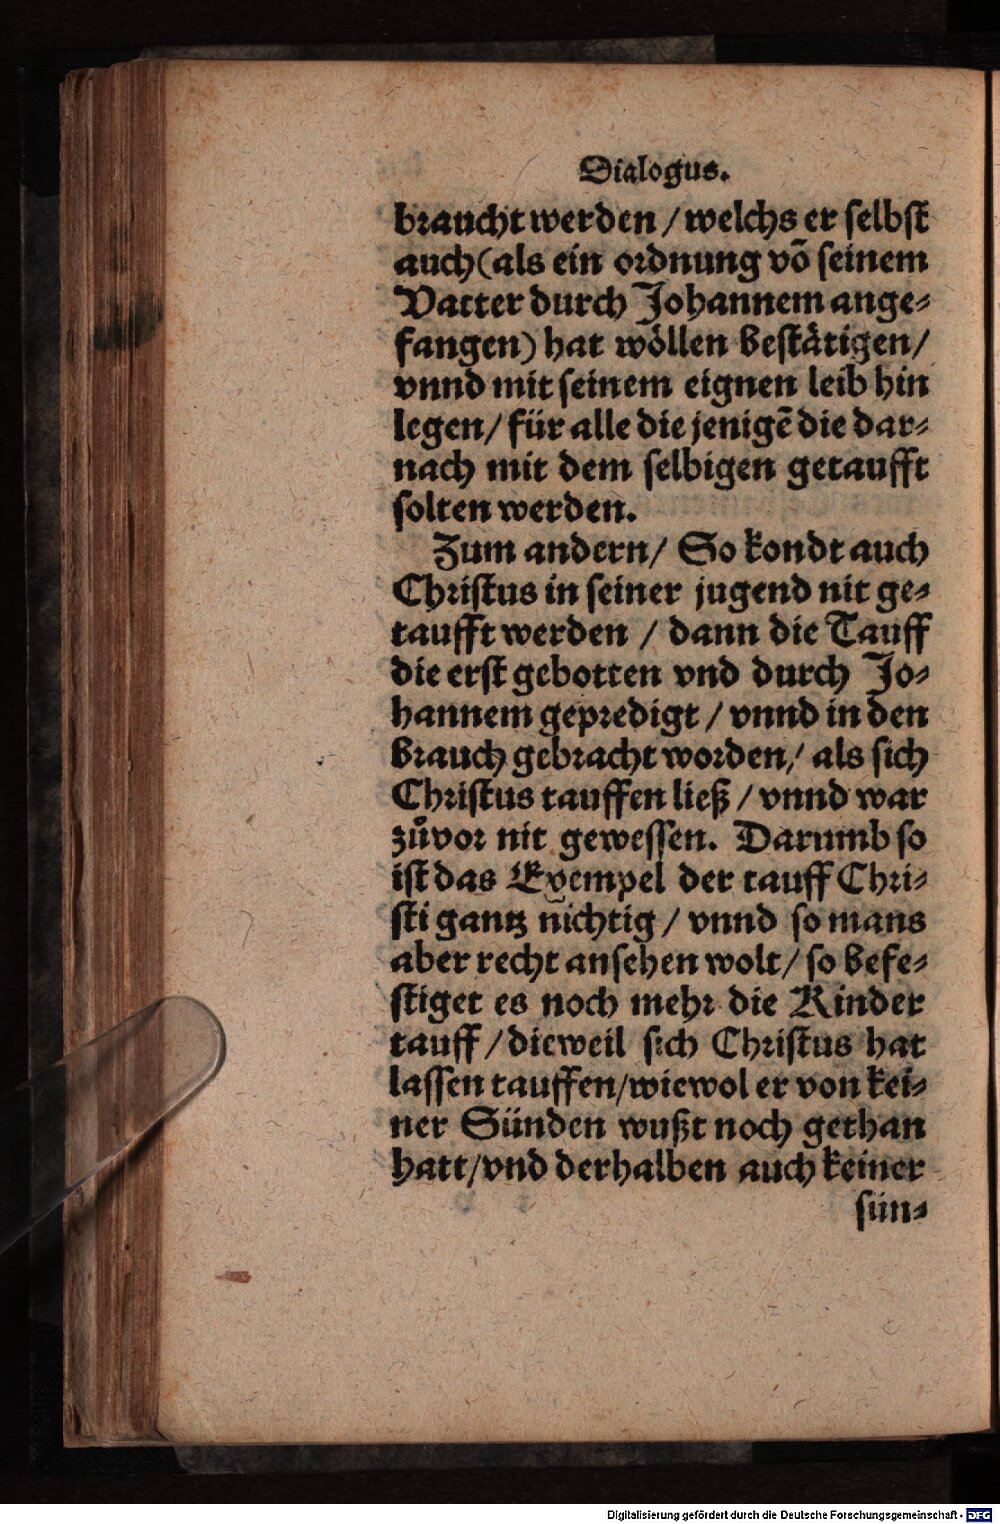 Dialogus.
braucht werden / welchs er selbst
auch (als ein ordnung võ seinem
Vatter durch Johannem ange⸗
fangen) hat wöllen bestätigen /
vnnd mit seinem eignen leib hin
legen / für alle die jenigẽ die dar⸗
nach mit dem selbigen getaufft
solten werden.
Zum andern / So kondt auch
Christus in seiner jugend nit ge⸗
taufft werden / dann die Tauff
die erst gebotten vnd durch Jo⸗
hannem gepredigt / vnnd in den
brauch gebracht worden / als sich
Christus tauffen ließ / vnnd war
zůvor nit gewessen. Darumb so
ist das Exempel der tauff Chri⸗
sti gantz nichtig / vnnd so mans
aber recht ansehen wolt / so befe⸗
stiget es noch mehr die Kinder
tauff / dieweil sich Christus hat
lassen tauffen / wiewol er von kei⸗
ner Sünden wußt noch gethan
hatt / vnd derhalben auch keiner
sün⸗
Digitalisierung gefördert durch die Deutsche Forschungsgemeinschaft - DFG